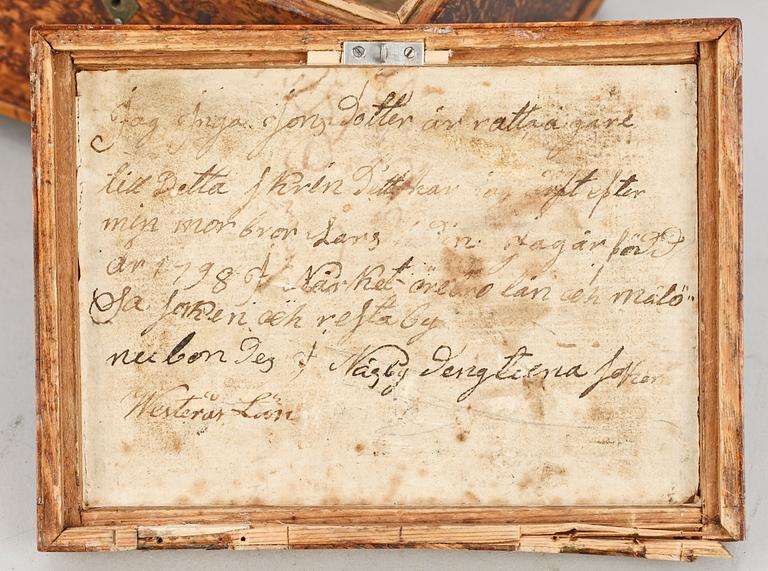 Jag Inga Jons Dotter är rätta ägare
till Detta skrin Dett har jag ärft efter
min mor bror Lars Jag är född
år 1798 i Närket örebro län och målö"
sa soken och resta by
nu bon des i Näsby Dengtuna soken
Westerås Län